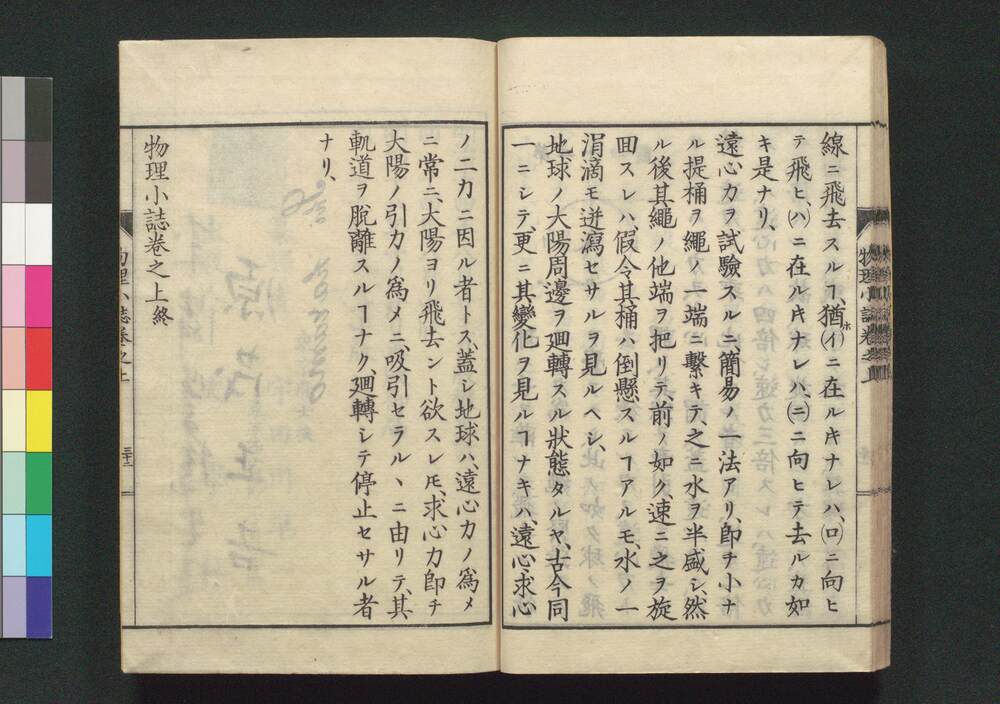 線ニ飛去スルヿ、猶ホ(イ)ニ在ルキナレハ、(ロ)ニ向ヒ
テ飛ヒ、(ハ)ニ在ルキナレハ、(ニ)ニ向ヒテ去ルカ如
キ是ナリ、
遠心力ヲ試驗スルニ、簡易ノ一法アリ、卽チ小ナ
ル提桶ヲ繩ノ一端ニ繫キテ、之ニ水ヲ半盛シ、然
ル後其繩ノ他端ヲ把リテ、前ノ如ク、速ニ之ヲ旋
回スレハ、假令其桶ハ倒懸スルヿアルモ、水ノ一
涓滴モ迸瀉セサルヲ見ルヘシ、
地球ノ大陽周邊ヲ廻轉スル狀態タルヤ、古今同
一ニシテ、更ニ其變化ヲ見ルヿナキハ、遠心求心
物理小誌卷之上
ノ二力ニ因ル者トス、蓋シ地球ハ、遠心力ノ爲メ
ニ常ニ、大陽ヨリ飛去ント欲スレ𪜈、求心力卽チ
大陽ノ引力ノ爲メニ、吸引セラルヽニ由リテ、其
軌道ヲ脫離スルヿナク、廻轉シテ停止セサル者
ナリ、
物理小誌卷之上終
物理小誌卷之上